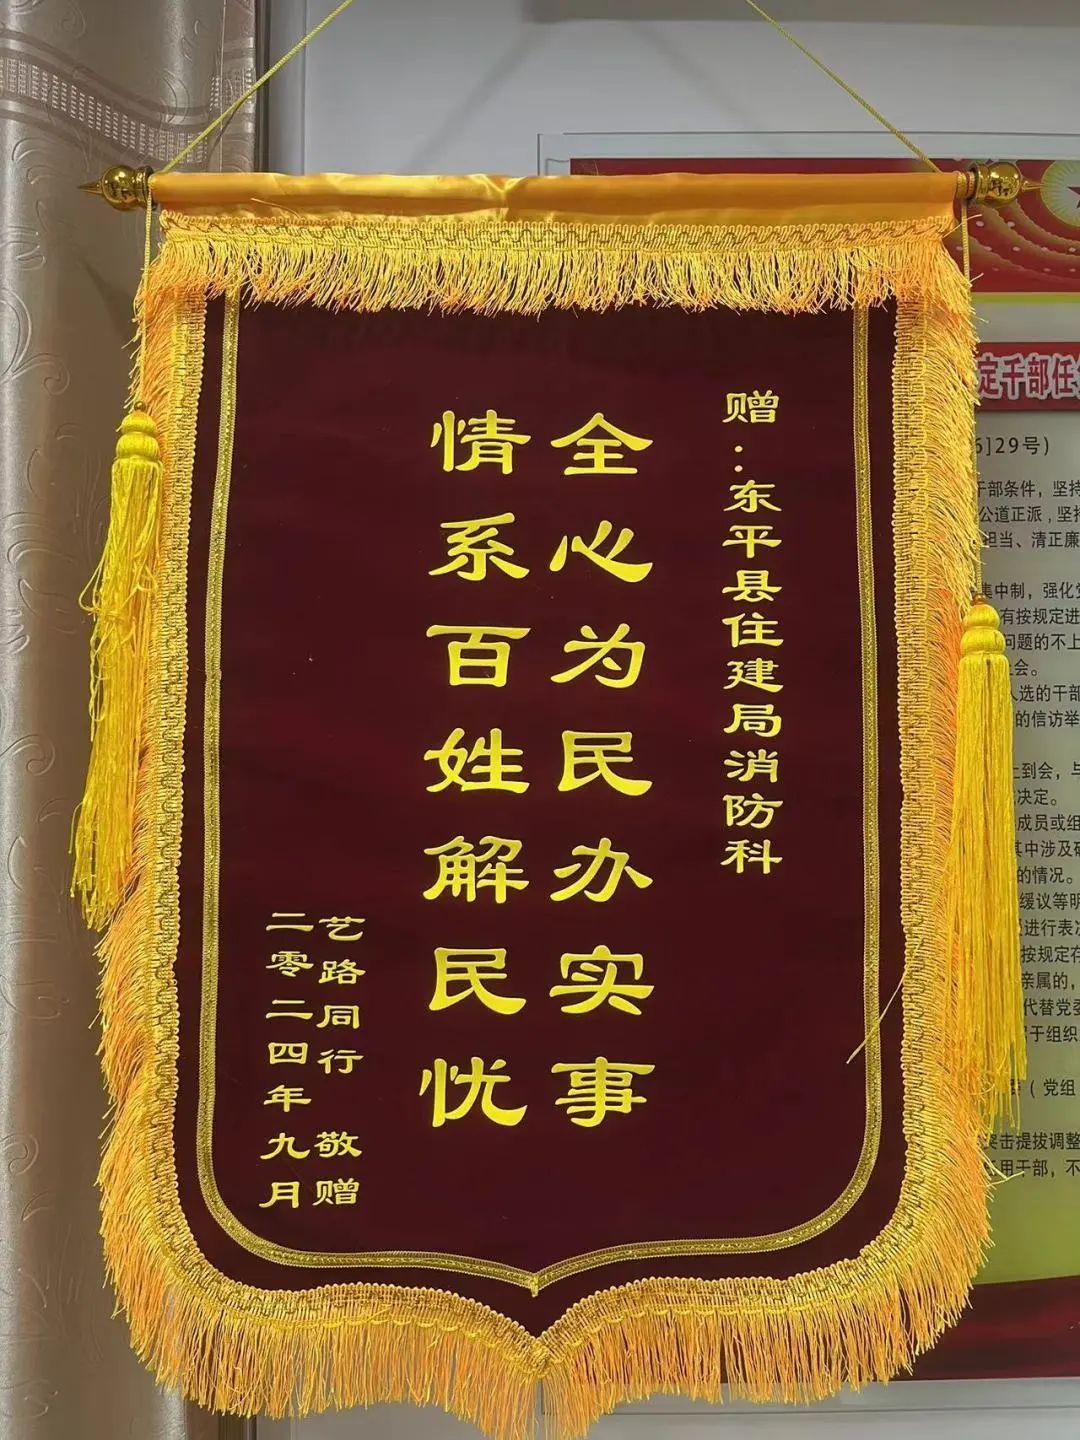 赠：东平县住建局消防科
全心为民办实事
情系百姓解民忧
艺路同行 敬赠
二零二四年九月
定干部任
]29号)
干部条件，坚持
公道正派，坚持
担当、清正廉
集中制，强化党
有按规定进
问题的不上
会。
人选的干部
的信访举
到会，与
决定。
成员或组
其中涉及
的情况。
缓议等明
进行表决
按规定存
亲属的，
代替党委
于组织
(党组
突击提拔调整
用干部，不